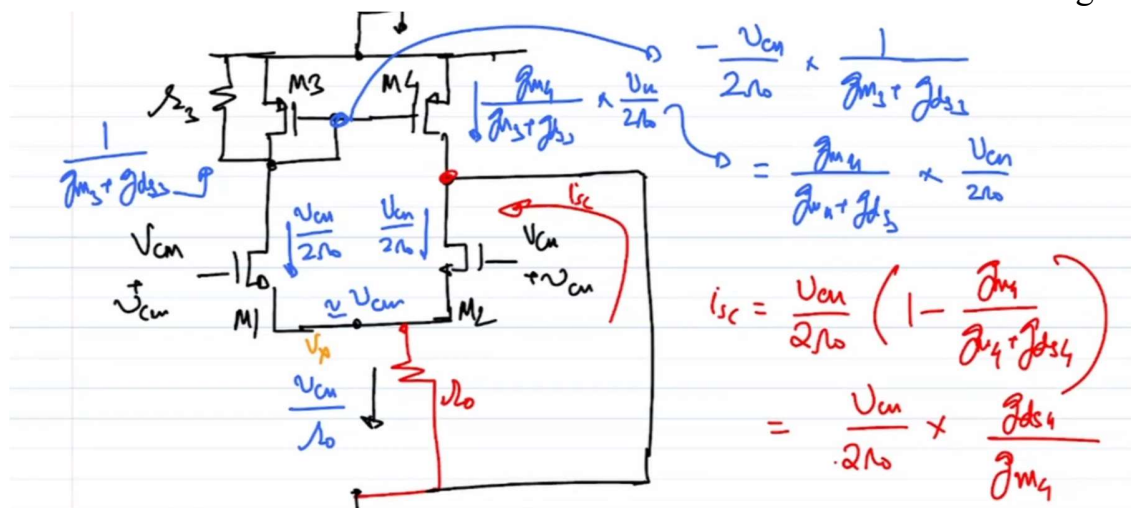 M3 M4
r₃
1/(gm₃ + gds₃)
gm₄/(gm₃ + gds₃) × vcm/2r₀
- vcm/2r₀ × 1/(gm₃ + gds₃)
= gm₄/(gm₄ + gds₃) × vcm/2r₀
isc
VCM
+
vcm
vcm/2r₀ vcm/2r₀
VCM
+vcm
M1
≈ vcm
M2
Vx
vcm/r₀
r₀
isc = vcm/2r₀ (1 - gm₄/(gm₄ + gds₄))
= vcm/2r₀ × gds₄/gm₄